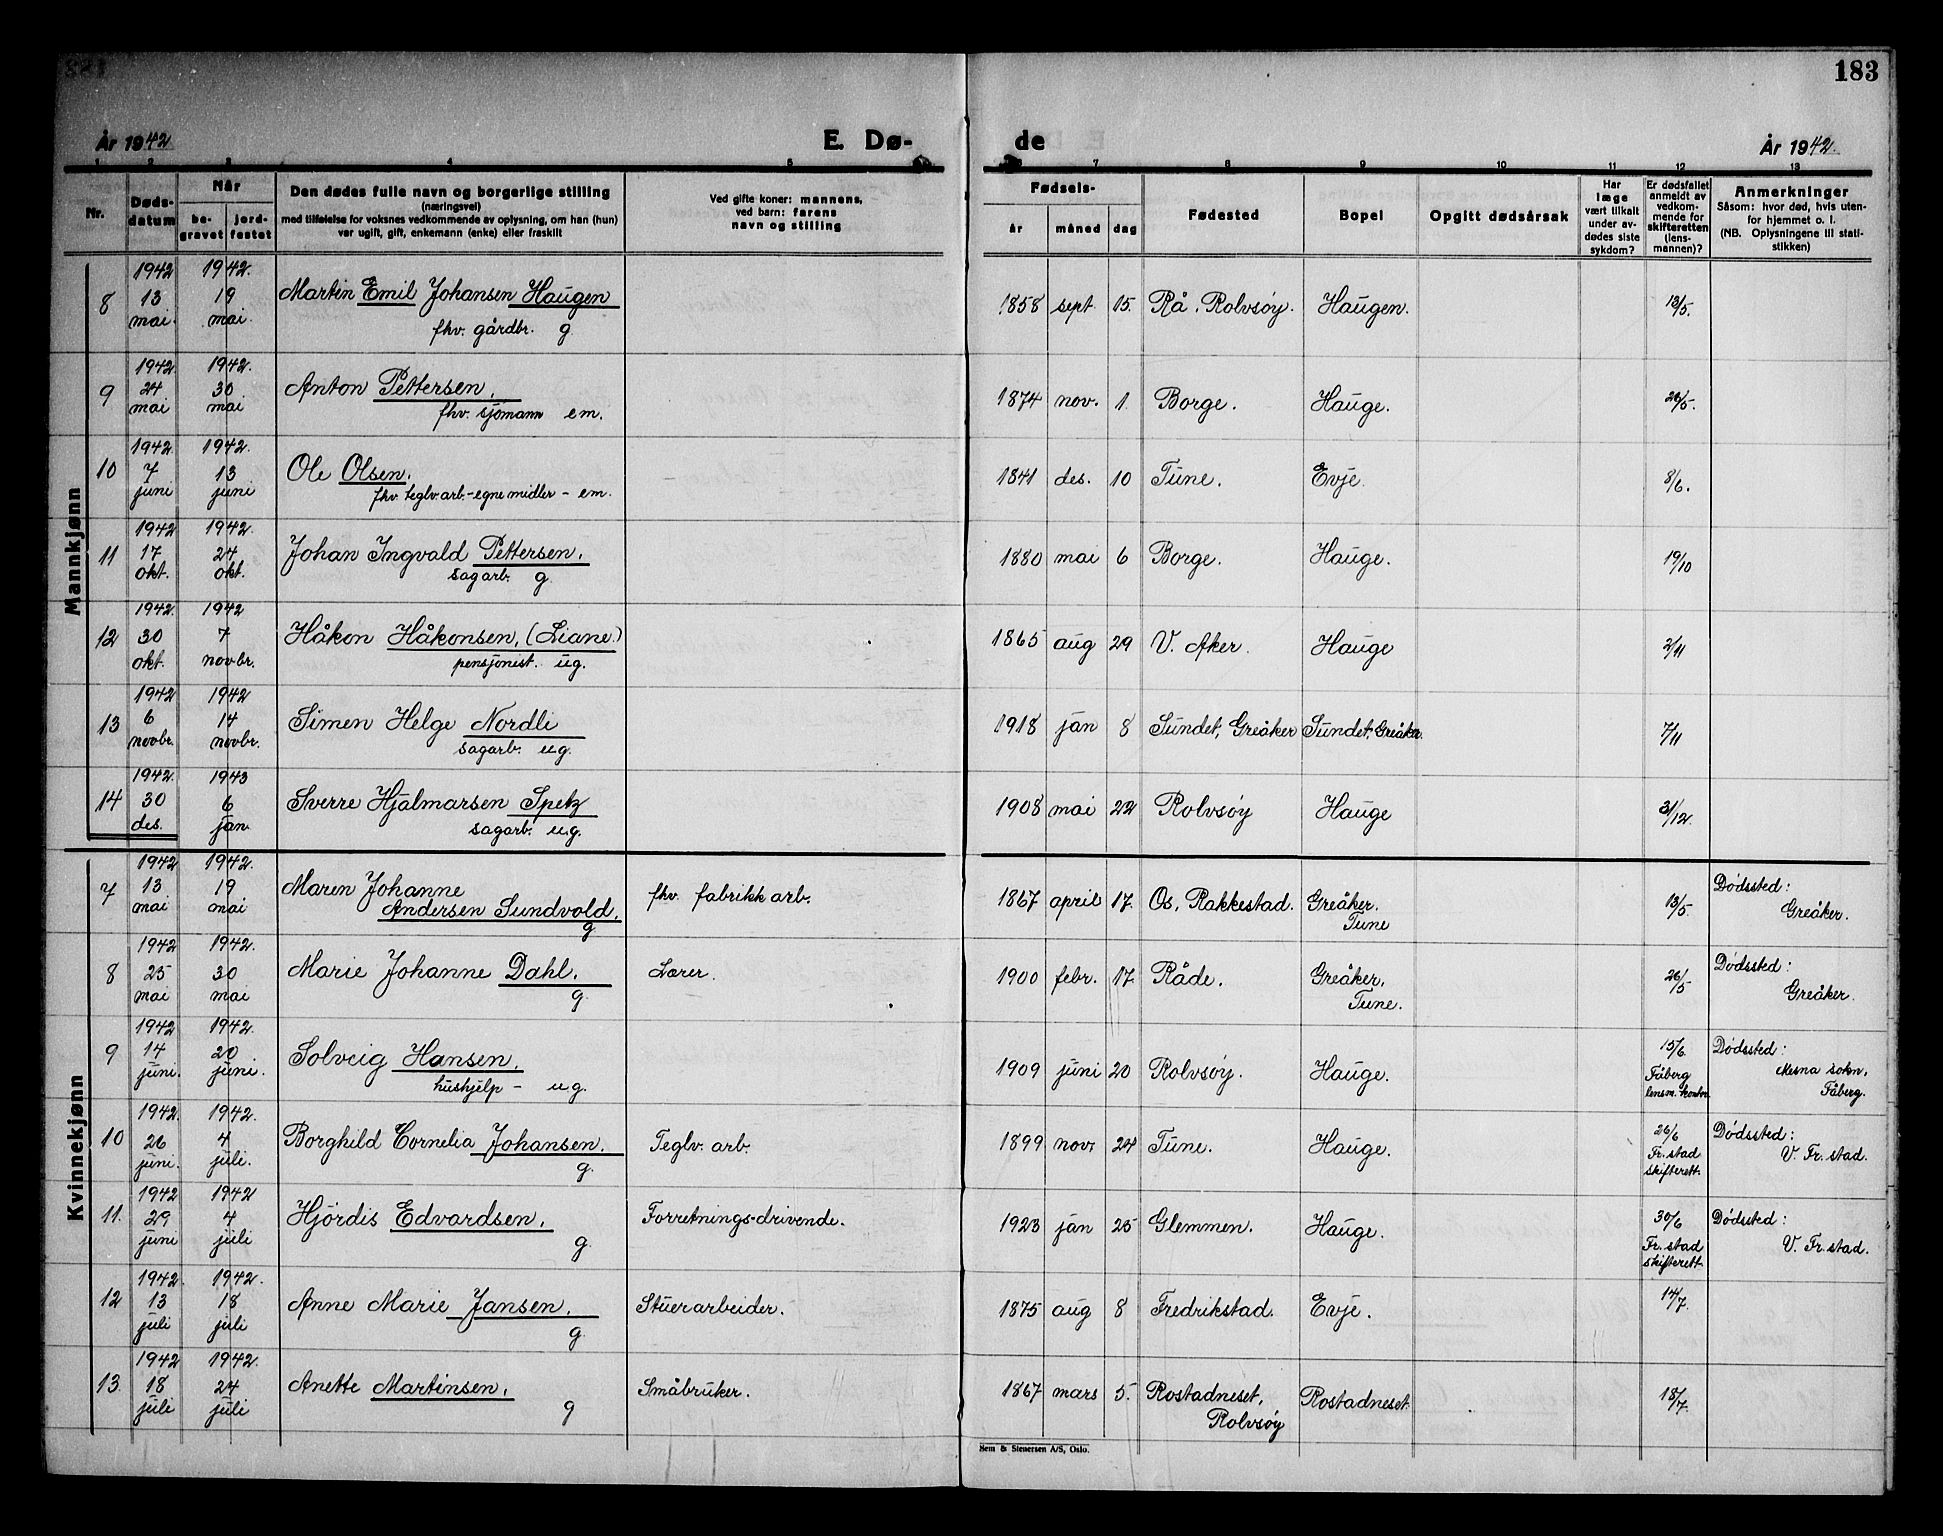 183
År 1942
E. Dø-
de
År 1942.
1 2 3 4 5 6 7 8 9 10 11 12 13
Nr.
Døds-
datum
Når
be-
gravet
jord-
festet
Den dødes fulle navn og borgerlige stilling
(næringsvei)
med tilføielse for voksnes vedkommende av oplysning, om han (hun)
var ugift, gift, enkemann (enke) eller fraskilt
Ved gifte koner: mannens,
ved barn: farens
navn og stilling
Fødsels-
år
måned
dag
Fødested
Bopel
Opgitt dødsårsak
Har
læge
vært tilkalt
under av-
dødes siste
sykdom?
Er dødsfallet
anmeldt av
vedkom-
mende for
skifteretten
(lens-
mannen)?
Anmerkninger
Såsom: hvor død, hvis uten-
for hjemmet o. l.
(NB. Oplysningene til stati-
stikken)
Mannkjønn
8 1942 13 mai. 1942. 19 mai. Martin Emil Johansen Haugen 1858 sept. 15. Rå, Rolvsøy. Haugen. 13/5.
fhv. gårdbr. g
9 1942. 24 mai 1942. 30 mai Anton Pettersen. 1874 nov. 1. Borge. Hauge. 26/5.
fhv. sjømann em.
10 1942. 7 juni 1942. 13 juni Ole Olsen. 1841 des. 10 Tune. Evje. 8/6.
fhv. teglv. arb. - egne midler - em.
11 1942 17 okt. 1942. 24 okt. Johan Ingvald Pettersen. 1880 mai 6 Borge. Hauge. 19/10
sagarb. g.
12 1942. 30 okt. 1942 7 novbr. Håkon Håkonsen, (Liane.) 1865 aug 29 V. Aker. Hauge 2/11
pensjonist. ug.
13 1942 6 novbr. 1942 14 novbr. Simen Helge Nordli 1918 jan 8 Sundet, Greåker Sundet, Greåker. 7/11
sagarb. ug.
14 1942. 30 des. 1943 6 jan. Sverre Hjalmarsen Spetz 1908 mai 22 Rolvsøy Hauge 31/12.
sagarb. ug.
Kvinnekjønn
7 1942 13 mai 1942. 19 mai Maren Johanne fhv. fabrikkarb. 1867 april 17. Os, Rakkestad. Greåker. Tune 13/5. Dødssted: Greåker.
Andersen Sundvold.
g
8 1942 25 mai 1942. 30 mai Marie Johanne Dahl. Lærer. 1900 febr. 17. Råde. Greåker. Tune. 26/5 Dødssted: Greåker.
g.
9 1942 14 juni. 1942. 20 juni. Solveig Hansen. 1909 juni 20 Rolvsøy. Hauge. 15/6. Fåberg lensm. kontor. Dødssted: Mesna sokn, Fåberg.
hushjelp - ug.
10 1942. 26 juni. 1942. 4 juli. Borghild Cornelia Johansen. Teglv. arb. 1899 nov. 24 Tune. Hauge. 26/6 Fr. stad skifterett Dødssted: V. Fr. stad.
g.
11. 1942 29 juni 1942 4 juli Hjördis Edvardsen. Forretnings-drivende. 1923 jan 25 Glemmen. Hauge. 30/6 Fr. stad skifterett. Dødssted: V. Fr. stad.
g
12 1942. 13 juli 1942. 18 juli Anne Marie Jansen. Stuerarbeider. 1875 aug 8 Fredrikstad. Evje. 14/7.
g
13. 1942 18 juli 1942. 24 juli Anette Martinsen. Småbruker. 1867 mars 5. Rostadneset, Rolvsøy Rostadneset. 18/7.
g
Sem & Stenersen A/S, Oslo.